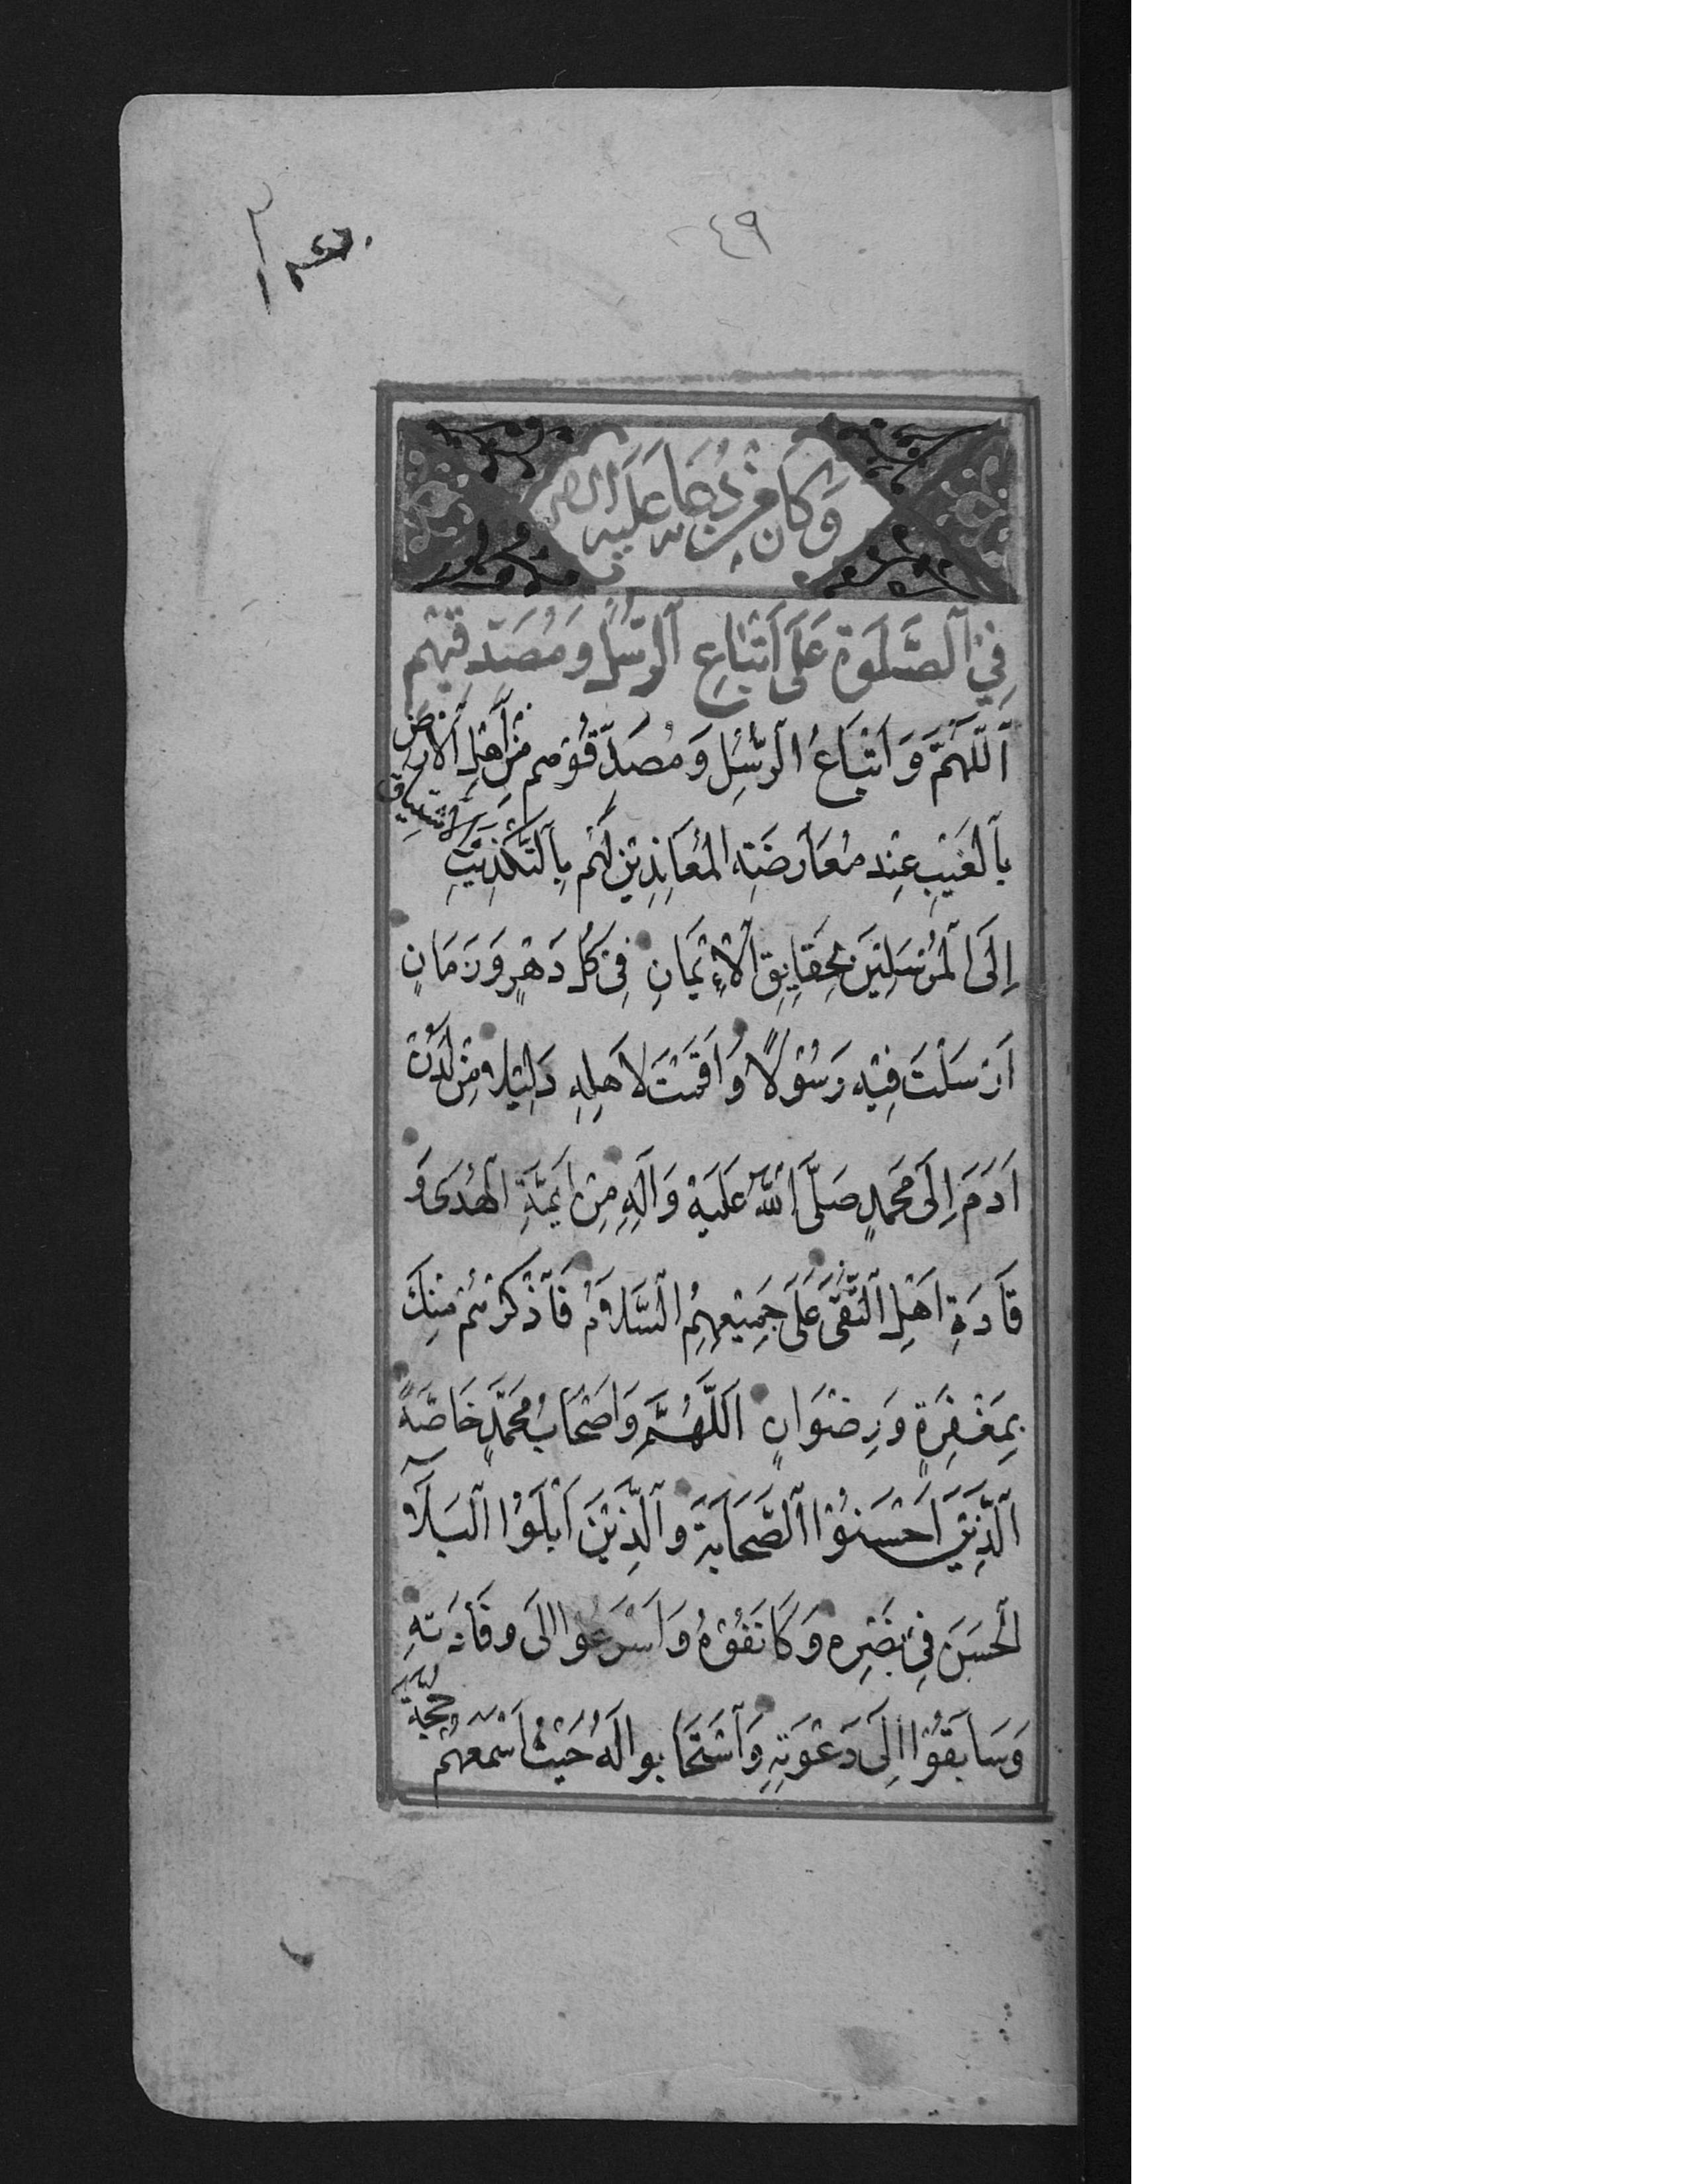 ٤٩
وَكَانَ مِنْ دُعَائِهِ عَلَيْهِ
فِي ٱلصَّلَوةِ عَلَى اَتْبَاعِ ٱلرُّسُلِ وَمُصَدِّقِيْهِم
ٱللَّهُمَّ وَ اَتْبَاعُ الرُّسُلِ وَ مُصَدِّقُوْهُم مِنْ اَهْلِ ٱلْاَرْضِ
بِٱلْغَيْبِ عِنْدَ مُعَارَضَةِ الْمُعَانِدِيْنَ لَهُم بِالتَّكْذِيْبِ وَالْاِشْتِيَاقِ
اِلَى الْمُرْسَلِيْنَ بِحَقَايِقِ الْاِيْمَانِ فِى كُلِّ دَهْرٍ وَ زَمَانٍ
اَرْسَلْتَ فِيْهِ رَسُوْلًا وَ اَقَمْتَ لِاَهْلِهِ دَلِيْلًا مِنْ لَدُنْ
اَدَمَ اِلَى مُحَمَّدٍ صَلَّى اللّٰهُ عَلَيْهِ وَ اٰلِهِ مِنْ اَئِمَّةِ الْهُدَى وَ
قَادَةِ اَهْلِ التُّقَى عَلَى جَمِيْعِهِمُ السَّلَامُ فَاذْكُرْهُم مِنْكَ
بِمَغْفِرَةٍ وَ رِضْوَانٍ اَللَّهُمَّ وَ اَصْحَابُ مُحَمَّدٍ خَاصَّةً
الَّذِيْنَ اَحْسَنُوْا الصَّحَابَةَ وَ الَّذِيْنَ اَبْلَوُا الْبَلَآءَ
الْحَسَنَ فِى نَصْرِهِ وَ كَانَفُوْهُ وَ اَسْرَعُوا اِلَى وِفَادَتِهِ
وَ سَابَقُوْا اِلَى دَعْوَتِهِ وَ اسْتَجَابُوا لَهُ حَيْثُ اَسْمَعَهُمْ حُجَّةَ